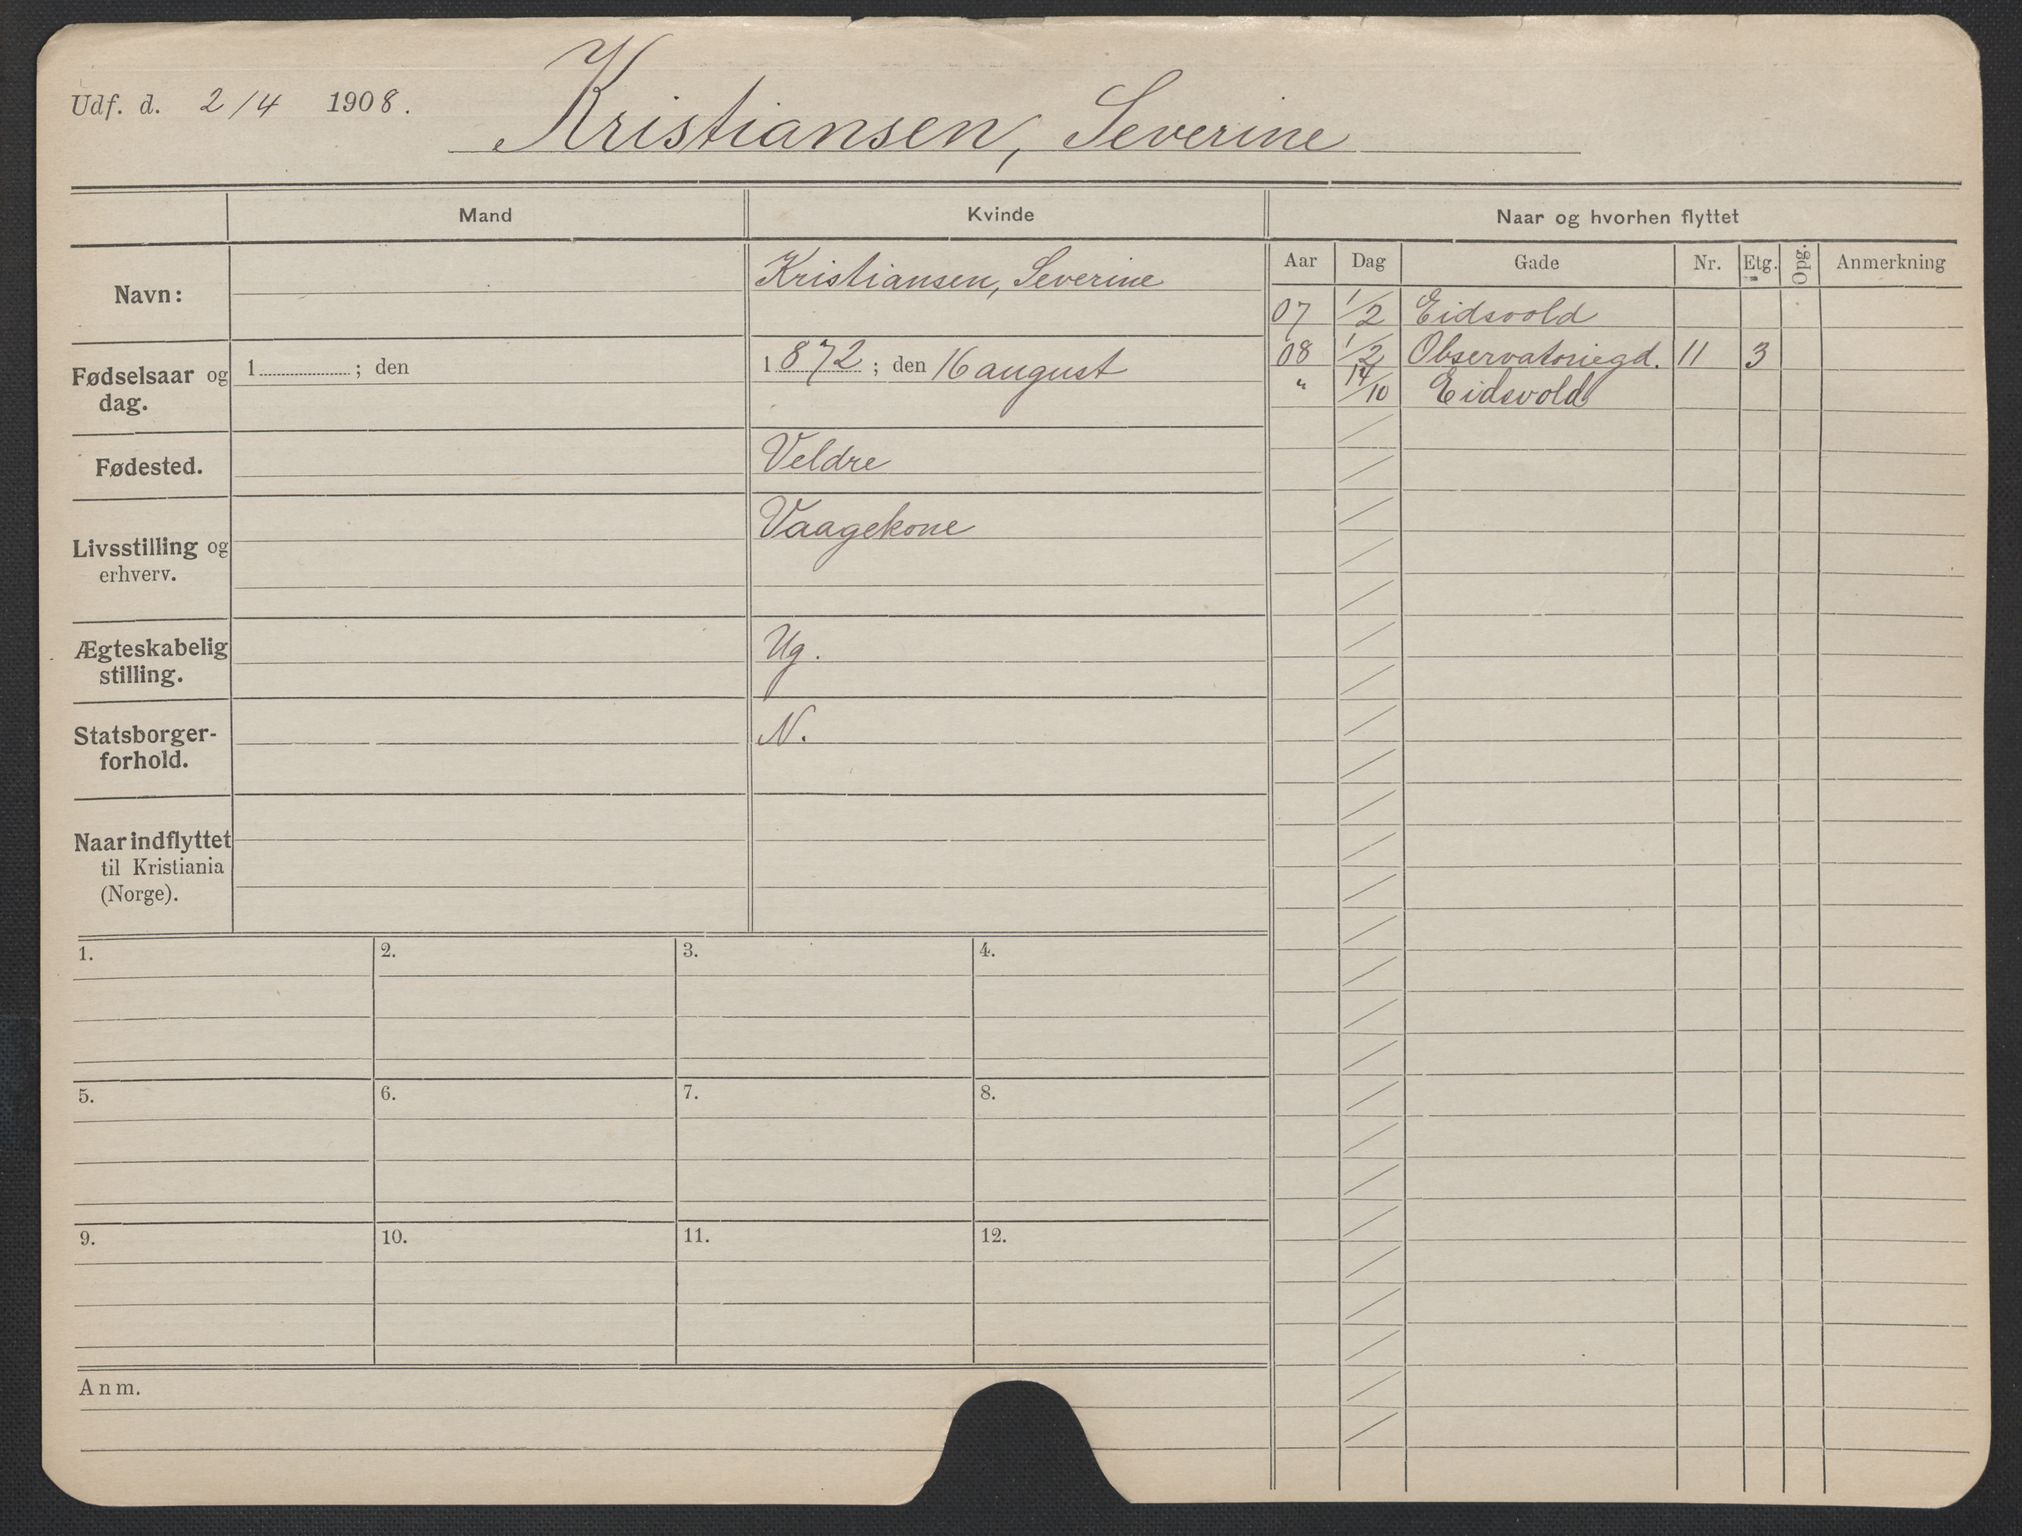 Udf. d. 2/4 1908.
Kristiansen, Severine
Mand
Kvinde
Naar og hvorhen flyttet
Navn:
Kristiansen, Severine
Fødselsaar og dag.
1 ; den
1872 ; den 16 august
Fødested.
Veldre
Livsstilling og erhverv.
Vaagekone
Ægteskabelig stilling.
Ug.
Statsborger-
forhold.
N.
Naar indflyttet
til Kristiania
(Norge).
Aar Dag Gade Nr. Etg. Opg. Anmerkning
07 1/2 Eidsvold
08 1/2 Observatoriegd. 11 3
" 14/10 Eidsvold
1. 2. 3. 4.
5. 6. 7. 8.
9. 10. 11. 12.
Anm.